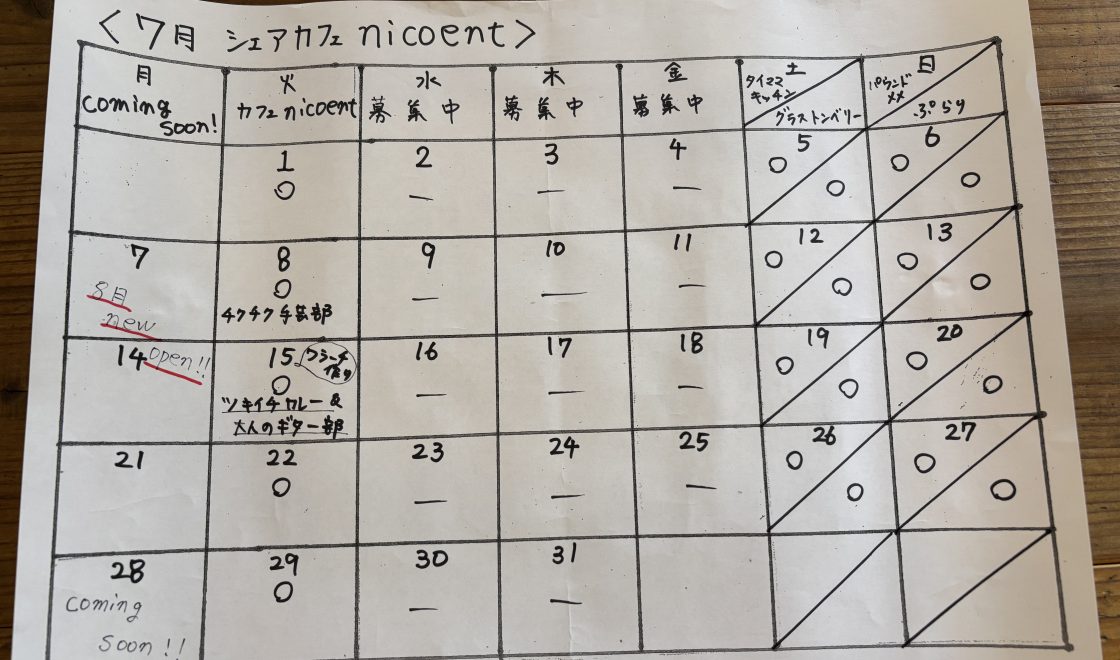 ＜7月 シェアカフェ nicoent＞
月 火 水 木 金 土 日
coming soon! カフェnicoent 募集中 募集中 募集中 タイママキッチン グラストンベリー パウンドメメ ぷらり
1 2 3 4 5 6
○ — — — ○ ○ ○ ○
7 8 9 10 11 12 13
○ — — — ○ ○ ○ ○
8月 new チクチク手芸部
14 open!! 15 ブランチ作り 16 17 18 19 20
○ — — — ○ ○ ○ ○
ツキイチカレー&
大人のギター部
21 22 23 24 25 26 27
○ — — — ○ ○ ○ ○
28 29 30 31
coming ○ — —
soon!!